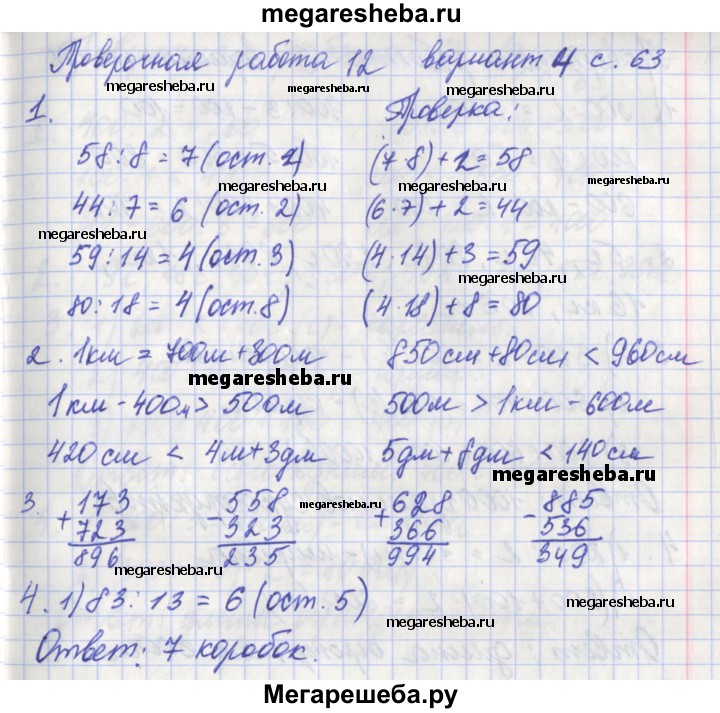 megaresheba.ru
Проверочная работа 12 вариант 4 с. 63
megaresheba.ru megaresheba.ru
1. Проверка:
58:8=7(ост. 2) (7·8)+2=58
megaresheba.ru megaresheba.ru
44:7=6 (ост. 2) (6·7)+2=44
megaresheba.ru
59:14=4(ост.3) (4·14)+3=59
megaresheba.ru
80:18=4(ост.8) (4·18)+8=80
2. 1км=700м+300м 850см+80см<960см
megaresheba.ru
1км-400м>500м 500м>1км-600м
420см<4м+3дм 5дм+8дм<140см
megaresheba.ru
3. +173 -558 +628 -885
723 323 366 536
megaresheba.ru
896 235 994 349
megaresheba.ru
4. 1) 83:13=6(ост.5)
megaresheba.ru
Ответ: 7 коробок.
megaresheba.ru
Мегарешеба.ру